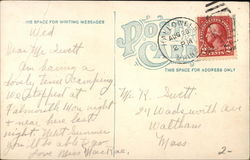 THIS SPACE FOR WRITING MESSAGES
Wed
Dear Mr Swett
Am having a
lovely time Camping
We stopped at
Falmouth Mon night
& near here last
night. Next Summer
you'll be able to go
Love Miss MacRae
POST
CARD
THIS SPACE FOR ADDRESS ONLY
HALLOWELL
AUG
PM
Mr. R. Swett
24 Wadsworth Ave
Waltham
Mass
2-